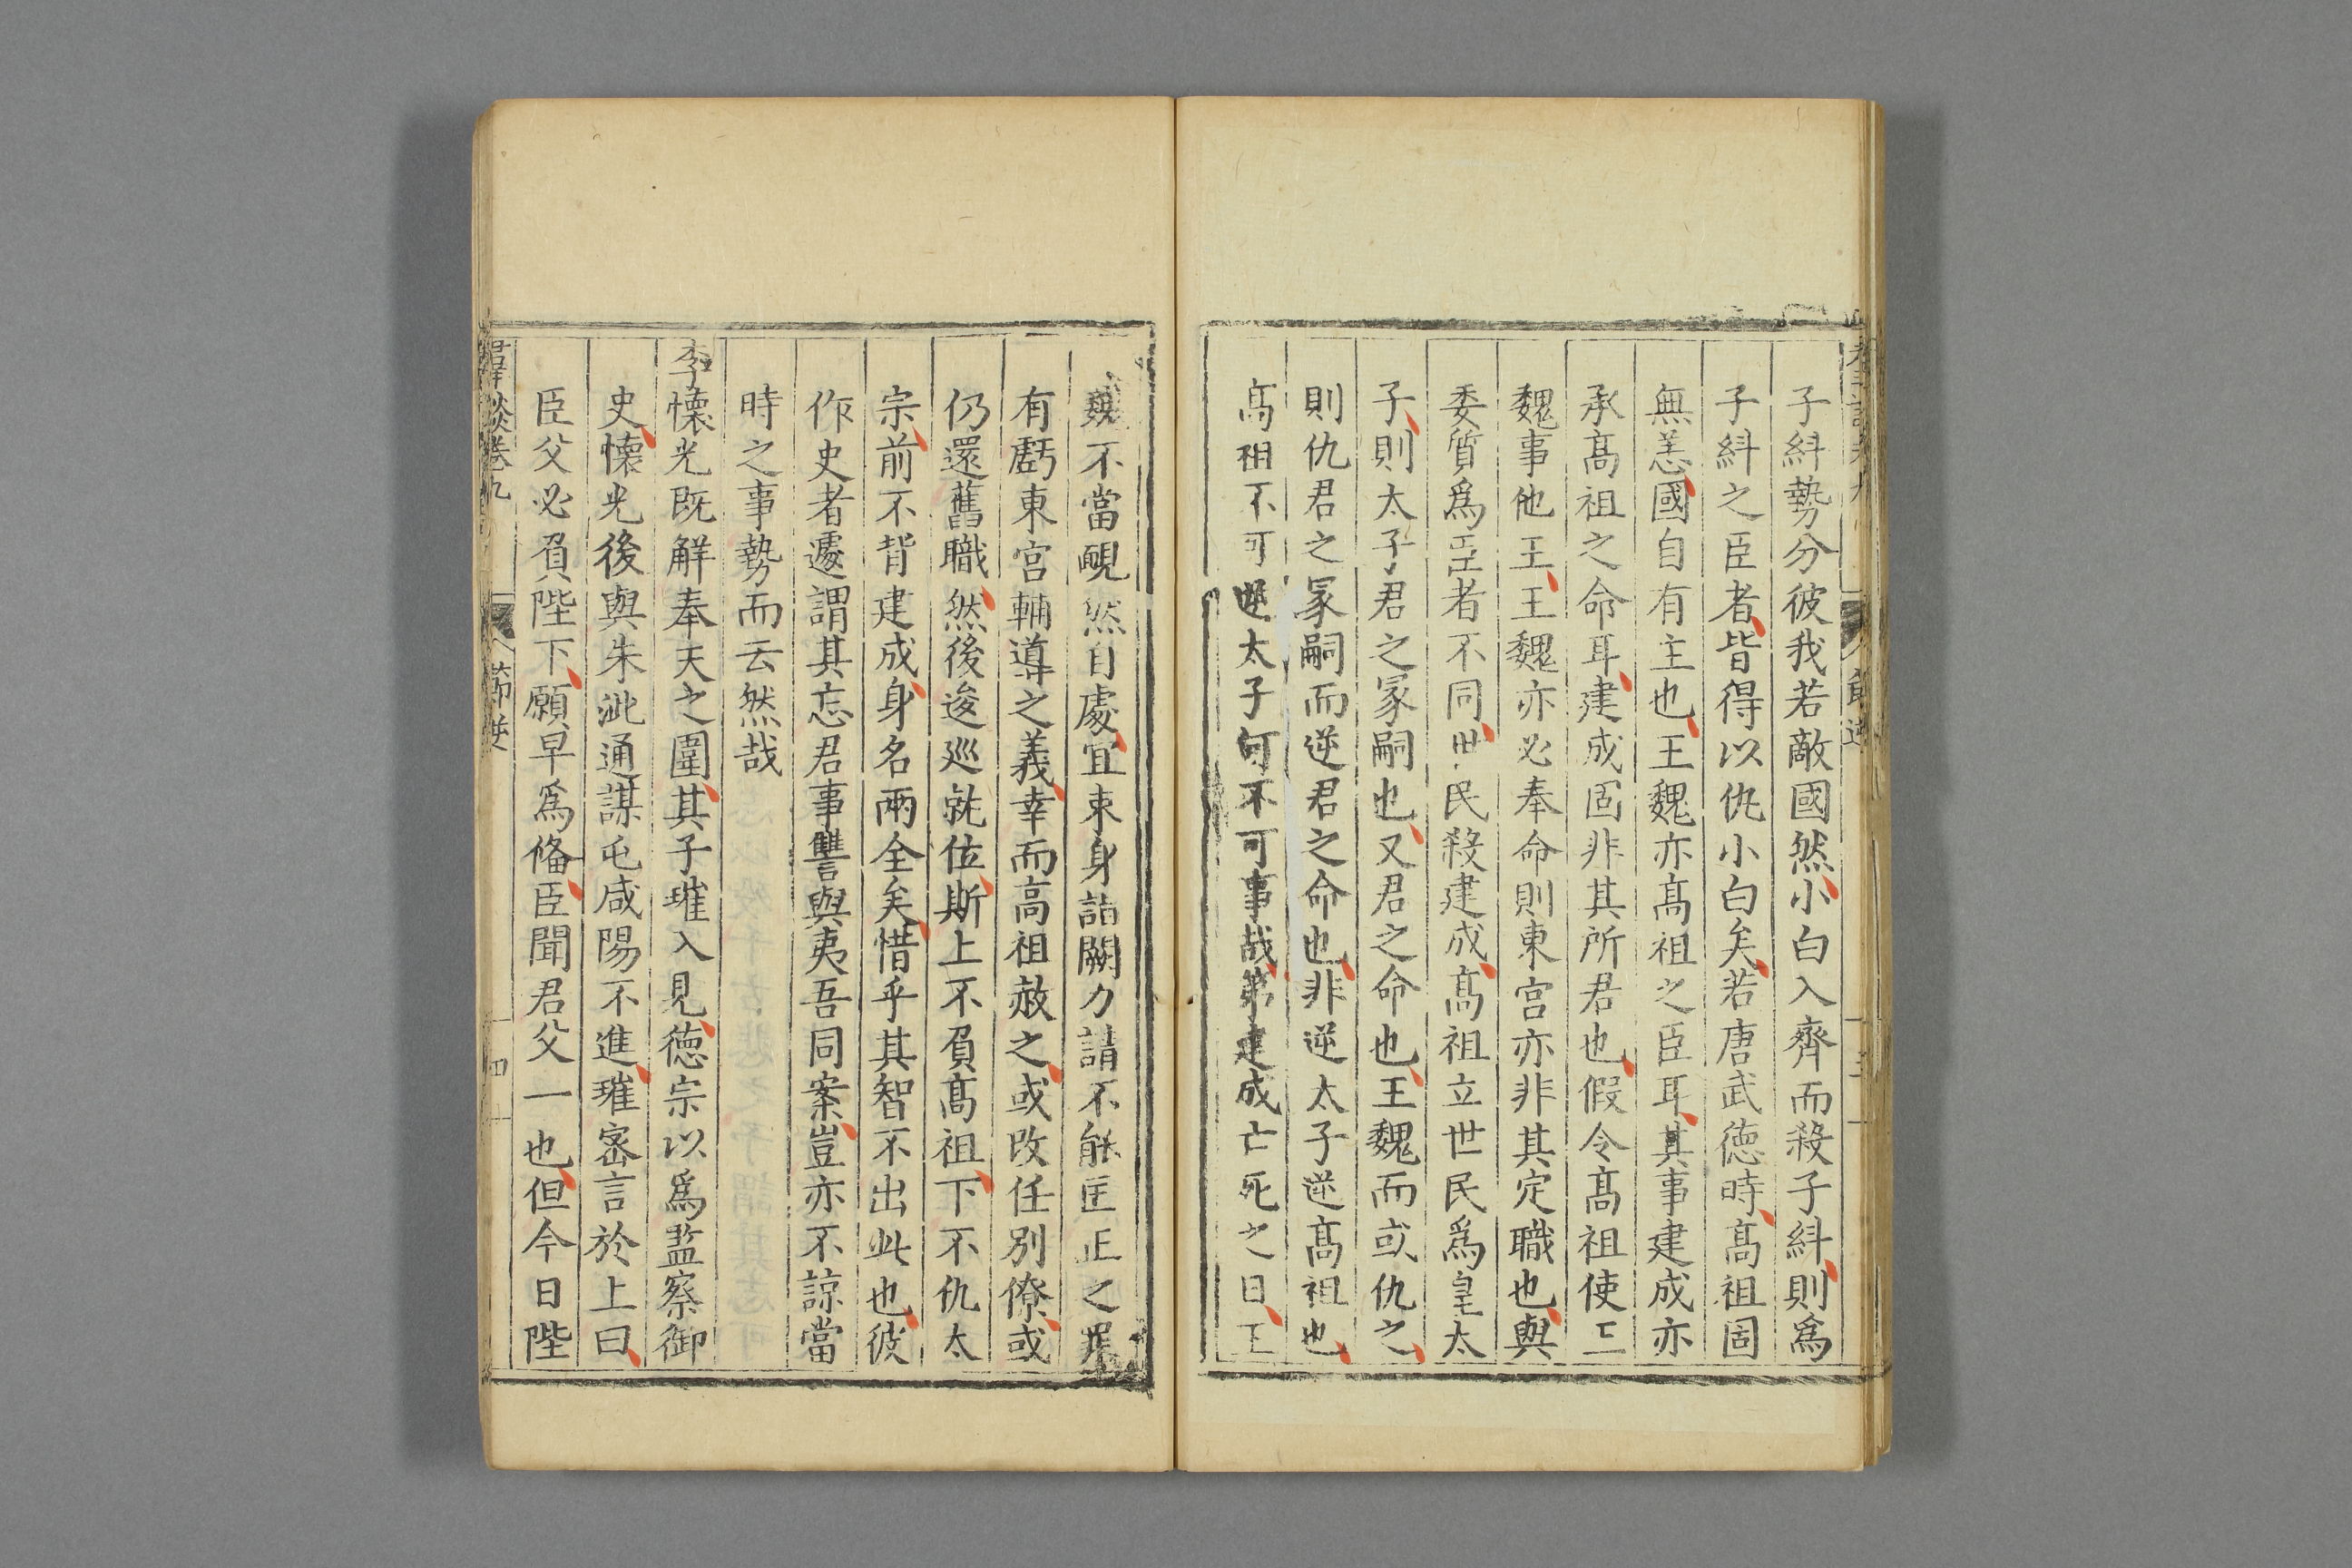 子糾勢分彼我若敵國然小白入齊而殺子糾則爲
子糾之臣者皆得以仇小白矣若唐武德時髙祖固
無恙國自有主也王魏亦髙祖之臣耳其事建成亦
承髙祖之命耳建成固非其所君也假令髙祖使王
魏事他王王魏亦必奉命則東宮亦非其定職也與
委質爲臣者不同世民殺建成髙祖立世民爲皇太
子則太子君之冡嗣也又君之命也王魏而或仇之
則仇君之冡嗣而逆君之命也非逆太子逆髙祖也
髙祖不可逆太子何不可事哉第建成亡死之日王
魏不當靦然自處宜束身詣闕力請不能匡正之罪
有虧東宮輔導之義幸而高祖赦之或改任別僚或
仍還舊職然後逡巡就位斯上不負髙祖下不仇太
宗前不背建成身名兩全矣惜乎其智不出此也彼
作史者遽謂其忘君事讐與夷吾同案豈亦不諒當
時之事勢而云然哉
李懐光既觧奉天之圍其子璀入見德宗以爲監察御
史懐光後與朱泚通謀屯咸陽不進璀宻言於上曰
臣父必負陛下願早爲俻臣聞君父一也但今日陛
羣談卷九
節逆
四